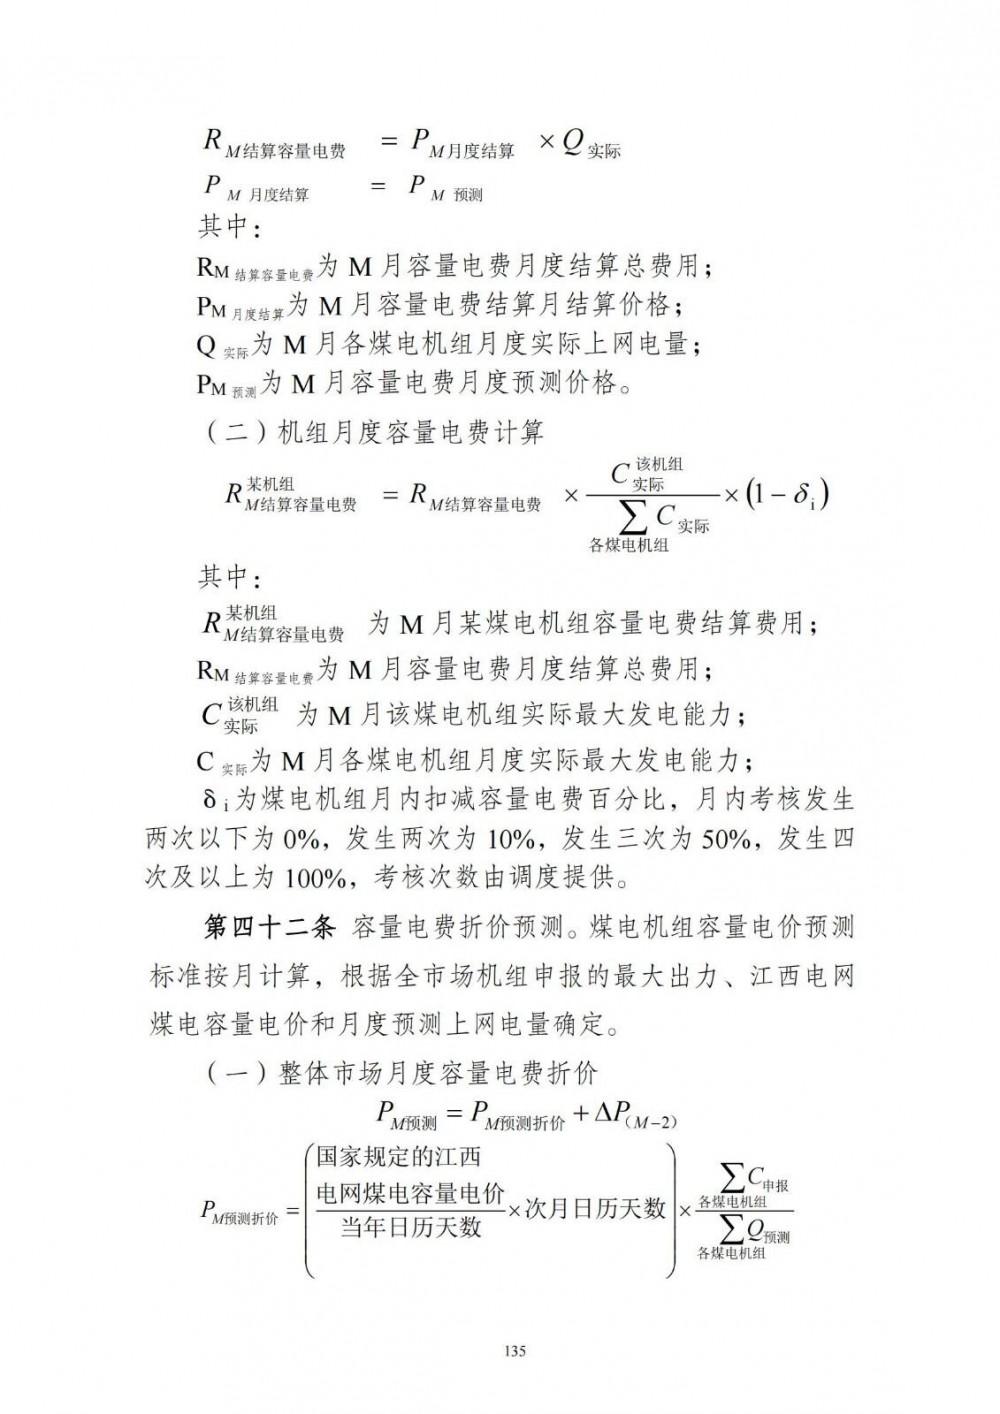 R M结算容量电费 = P M月度结算 × Q 实际
P M 月度结算 = P M 预测
其中：
RM 结算容量电费为 M 月容量电费月度结算总费用；
PM 月度结算为 M 月容量电费结算月结算价格；
Q 实际为 M 月各煤电机组月度实际上网电量；
PM 预测为 M 月容量电费月度预测价格。
（二）机组月度容量电费计算
R 某机组 M结算容量电费 = R M结算容量电费 × C 该机组 实际 / ∑ 各煤电机组 C 实际 × (1 − δ i)
其中：
R 某机组 M结算容量电费 为 M 月某煤电机组容量电费结算费用；
RM 结算容量电费为 M 月容量电费月度结算总费用；
C 该机组 实际 为 M 月该煤电机组实际最大发电能力；
C 实际为 M 月各煤电机组月度实际最大发电能力；
δ i 为煤电机组月内扣减容量电费百分比，月内考核发生
两次以下为 0%，发生两次为 10%，发生三次为 50%，发生四
次及以上为 100%，考核次数由调度提供。
第四十二条 容量电费折价预测。煤电机组容量电价预测
标准按月计算，根据全市场机组申报的最大出力、江西电网
煤电容量电价和月度预测上网电量确定。
（一）整体市场月度容量电费折价
P M预测 = P M预测折价 + ΔP（M−2）
P M预测折价 = ( 国家规定的江西电网煤电容量电价 / 当年日历天数 × 次月日历天数 ) × ∑ 各煤电机组 C 申报 / ∑ 各煤电机组 Q 预测
135